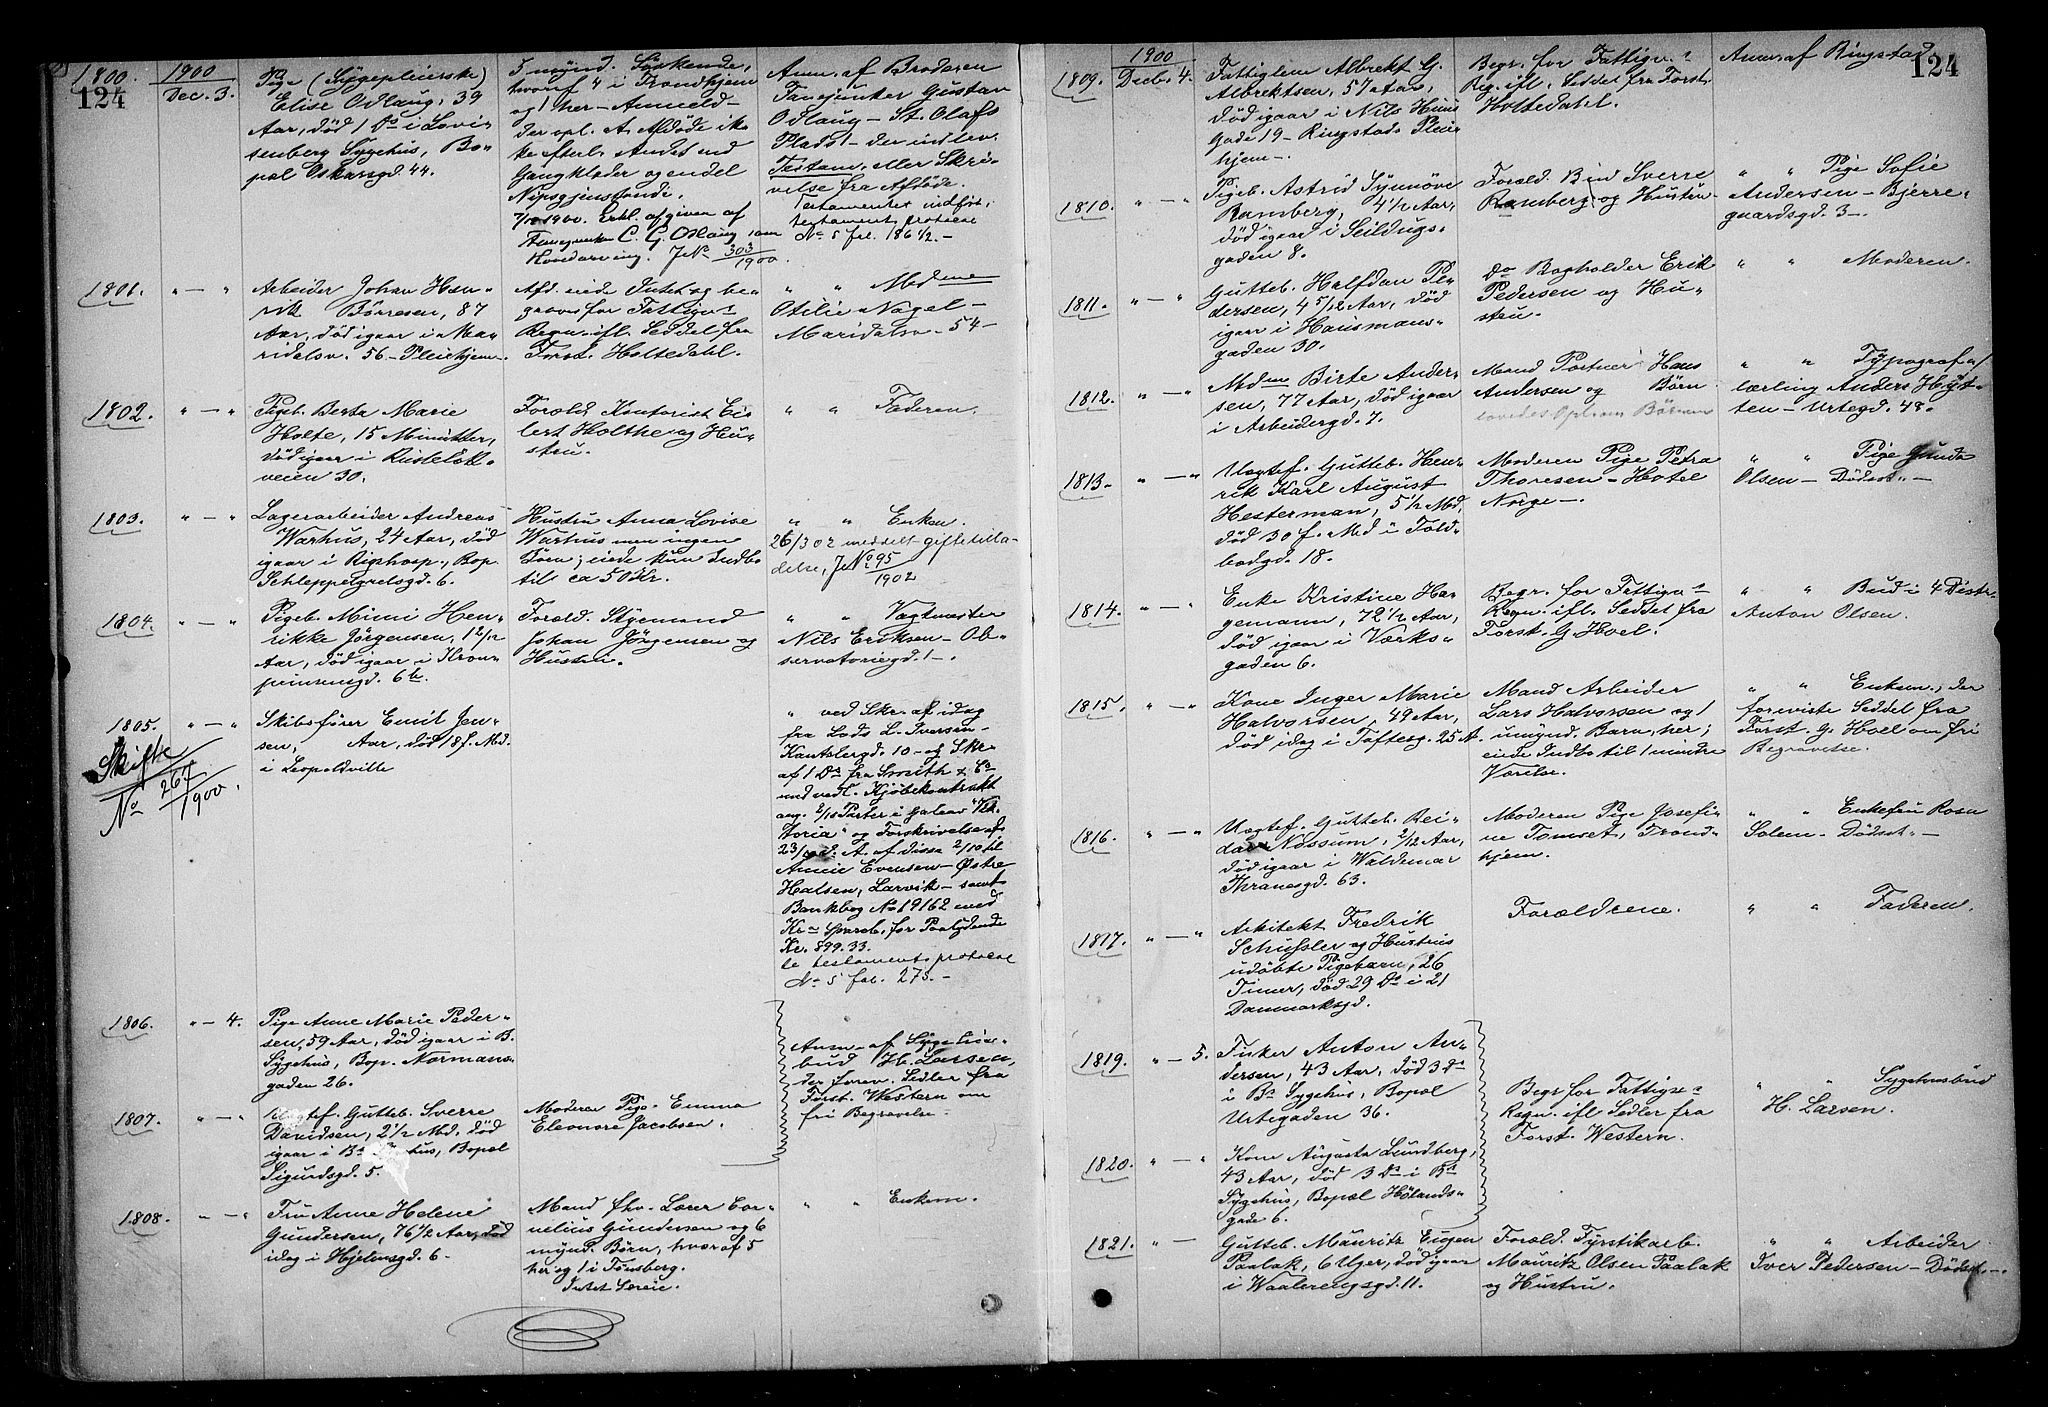 1800.
124
1900
Dec. 3.
Pige (Sygepleierske)
Elise Odlaug, 39
Aar, død 1 Ds i Lovi-
senberg Sygehus, Bo-
pæl Oskarsgd. 44.
5 mynd. Søskende,
hvoraf 4 i Trondhjem
og 1 her - Anmeld-
der opl. at Afdøde ik-
ke efterl. Andet end
Gangklæder og endel
Nipsgjenstande.
7/12 1900. Erkl. afgiven af
C. G. Odlaug som
Hovedarving. J.No 303/1900.
Anm. af Broderen
Fanejunker Gustav
Odlaug - St. Olafs
Plads 1 - der indlev.
Testam. eller Skri-
velse fra Afdøde.
Testamentet indført i
testaments protocol
No 5 fol. 186 1/2. -
1801.
" — "
Arbeider Johan Hen-
rik Børresen, 87
Aar, død igaar i Ma-
ridalsv. 56 - Pleiehjem -
Afd. eiede Intet og be-
graves for Fattigv.s
Regn. ifl. Seddel fra
Forst. Holtedahl.
" " Mdme
Otilie Nagel -
Maridalsv. 54 -
1802.
" — "
Pigeb. Berta Marie
Holte, 15 Minutter,
død igaar i Ruseløk-
veien 30.
Foræld. Kontorist Ei-
lert Holthe og Hu-
stru.
" " Faderen.
1803.
" — "
Lagerarbeider Andreas
Warhus, 24 Aar, død
igaar i Rigshosp., Bop.
Schleppegrelsgd. 6.
Hustru Anna Lovise
Warhus men ingen
Børn; eiede kun Indbo
til ca 50 Kr.
" " Enken.
26/3 02 meddelt giftetilla-
delse, J.No 95/1902
1804.
" — "
Pigeb. Mimi Hen-
rikke Jørgensen, 1 2/12
Aar, død igaar i Kron-
prinsensgd. 6 b.
Foræld. Styrmand
Johan Jörgensen og
Hustru.
" " Vagtmester
Nils Eriksen - Ob-
servatoriegd. 1 -.
1805.
Skifte
No 267/1900.
" — "
Skibsfører Emil Jen-
sen, Aar, død 18 f. Md.
i Leopoldville
" ved Skr. af idag
fra Lods L. Iversen -
10 - og Skr.
af 1 Ds fra Smith & Co
med vedl. Kjøbekontrakt
ang. 2/15 Parter i Galeas "Vik-
toria" og Forskrivelse af
23/10 d. A. af disse 2/10 til
Annie Evensen - Østre
Halsen, Larvik - samt
Bankbog No 19162 med
Kr.a Spareb. for Paalydende
Kr. 899.33.
testaments protocol
No 5 fol. 275. -
1806.
" — 4.
Pige Anne Marie Peder-
sen, 59 Aar, død igaar i B.
Sygehus, Bop. Normans-
gaden 26.
Anm. af Sygehus-
bud H. Larsen,
der forev. Sedler fra
Forst. Western om
fri Begravelse.
1807.
" — "
Uægtef. Gutteb. Sverre
Davidsen, 2 1/2 Md. død
igaar i Bs Sygehus, Bopæl
Sigurdsgd. 5.
Moderen Pige Emma
Eleonore Jacobsen.
1808.
" — "
Fru Anne Helene
Gundersen, 76 1/2 Aar, død
idag i Hjelmsgd. 6 -
Mand fhv. Lærer Cor-
nelius Gundersen og 6
mynd. Børn, hvoraf 5
her og 1 i Tønsberg.
" " Enkem.
124
1900
1809.
Decb. 4.
Fattiglem Albrekt G.
Albrektsen, 57 Aar,
død igaar i Nils Huus
gade 19 - Ringstads Pleie
hjem -.
Begr. for Fattigv.s
Reg. ifl. Seddel fra Forst.
Holtedahl.
Anm. af Ringstad
1810.
" — "
Pigeb. Astrid Synnöve
Ramberg, 4 1/2 Aar,
død igaar i Seildugs-
gaden 8.
Foræld. Bud Sverre
Ramberg og Hustru
" " Pige Sofie
Andersen - Bjerre-
gaardsgd. 3 -.
1811.
" — "
Gutteb. Halfdan Pe-
dersen, 4 5/12 Aar, død
igaar i Hausmans-
gaden 30.
Do Bogholder Erik
Pedersen og Hu-
stru.
" " Moderen.
1812.
" — "
Mdme Birte Ander-
sen, 77 Aar, død igaar
i Arbeidergd. 7.
Mand Portner Hans
Andersen og Børn
lovedes Opl. om Börnene
" " Typograf-
lærling Anders
- Urtegd. 48.
1813.
" — "
Uægtef. Gutteb. Hen-
rik Karl August
Hesterman, 5 1/2 Md.
død 30 f. Md i Told-
bodgd. 18.
Moderen Pige Petra
Thoresen - Hotel
Norge -.
" " Pige Gunda
Olsen - Dødsst. -
1814.
" — "
Enke Kristine Ha-
gemann, 72 1/2 Aar,
død igaar i Værks-
gaden 6.
Begr. for Fattigv.s
Regn. ifl. Seddel fra
Forst. G. Hoel.
" " Bud i 4 Distr.
Anton Olsen.
1815.
" — "
Kone Inger Marie
Halvorsen, 49 Aar,
død idag i Toftesg. 25 A.
Mand Arbeider
Lars Halvorsen og 1
umynd. Barn, her;
eiede Indbo til 1 mindre
Værelse.
" " Enkem., der
foreviste Seddel fra
Forst. G. Hoel om fri
Begravelse.
1816.
" — "
Uægtef. Gutteb. Rei-
dar Nossum, 2/12 Aar,
død igaar i Waldemar
Thranesgd. 63.
Moderen Pige Josefi-
ne Tomset, Trond-
hjem.
" " Enkefru Rosa
Solem - Dødsst. -
1817.
" — "
Arkitekt Fredrik
Schüssler og Hustrus
udøbte Pigebarn, 26
Timer, død 29 Ds i 21
Danmarksgd.
Forældrene.
" " Faderen.
1819.
" — 5.
Fisker Anton An-
dersen, 43 Aar, død 3 Ds
i Bs Sygehus, Bopæl
Urtegaden 36.
Begr. for Fattigv.s
Regn. ifl Sedler fra
Forst. Western.
" " Sygehusbud
H. Larsen.
1820.
" — "
Kone Augusta Lundberg,
43 Aar, død 3 Ds i Bs
Sygehus, Bopæl Hølands-
gade 6.
1821.
" —
Gutteb. Mauritz Eugen
Paalak, 6 Uger, død igaar
i Waalerengsgd. 11.
Foræld. Fyrstikarb.
Mauritz Olsen Paalak
og Hustru.
" " Arbeider
Iver Pedersen - Dødsst. -